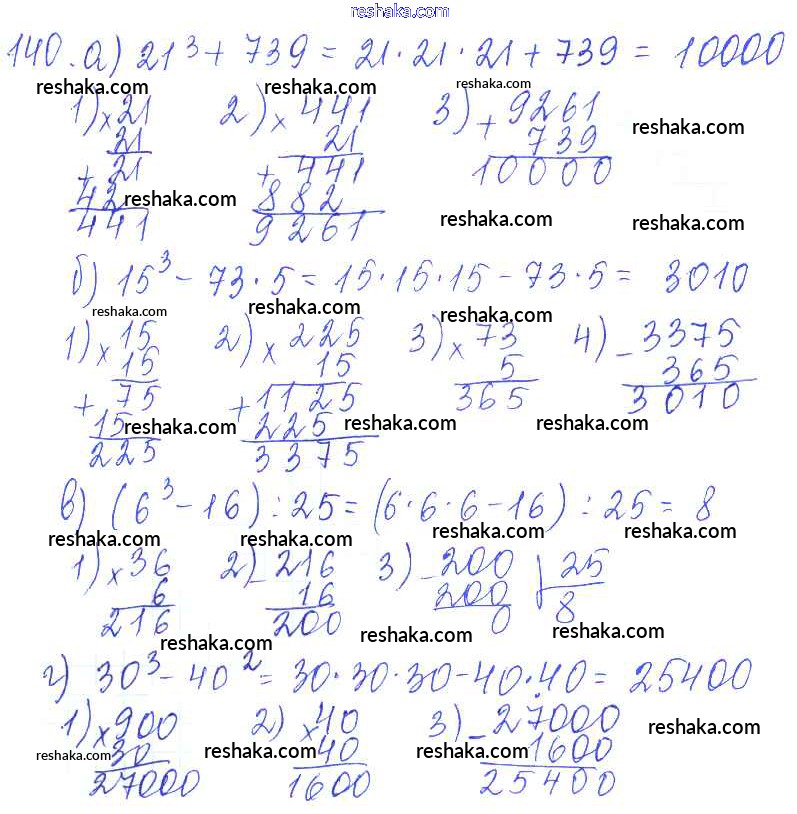 reshaka.com
140. а) 21³ + 739 = 21·21·21 + 739 = 10000
reshaka.com reshaka.com reshaka.com
1) × 21 2) × 441 3) + 9261 reshaka.com
21 21 739
+ 21 + 441 10000
42 reshaka.com 882
441 9261 reshaka.com reshaka.com
б) 15³ - 73·5 = 15·15·15 - 73·5 = 3010
reshaka.com reshaka.com reshaka.com
1) × 15 2) × 225 3) × 73 4) - 3375
15 15 5 365
+ 75 + 1125 365 3010
15 reshaka.com 225 reshaka.com reshaka.com
225 3375
в) (6³ - 16) : 25 = (6·6·6 - 16) : 25 = 8
reshaka.com reshaka.com reshaka.com reshaka.com
1) × 36 2) - 216 3) - 200 25
6 16 200 8
216 200 0
reshaka.com reshaka.com reshaka.com
г) 30³ - 40² = 30·30·30 - 40·40 = 25400
1) × 900 2) × 40 3) - 27000 reshaka.com
reshaka.com 30 reshaka.com 40 reshaka.com 1600
27000 1600 25400